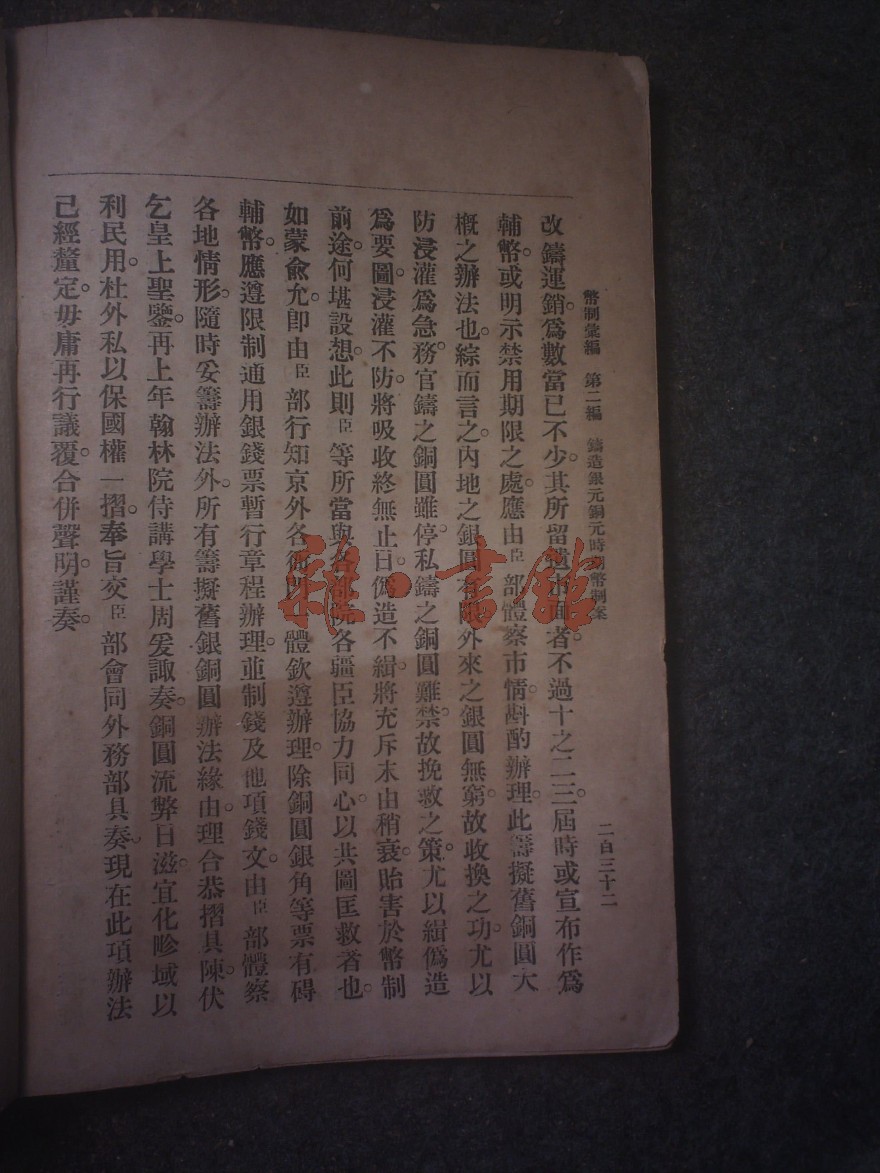 幣制彙編 第二編 鑄造銀元銅元時期幣制案 二百三十二
改鑄運銷。爲數當已不少。其所留遺市面者。不過十之二三。屆時或宣布作爲
輔幣。或明示禁用期限之處。應由臣部體察市情。斟酌辦理。此籌擬舊銅圓大
概之辦法也。綜而言之。內地之銀圓有限。外來之銀圓無窮。故收換之功。尤以
防浸灌爲急務。官鑄之銅圓雖停。私鑄之銅圓難禁。故挽救之策。尤以緝僞造
爲要圖。浸灌不防。將吸收終無止日。僞造不緝。將充斥末由稍衰。貽害於幣制
前途。何堪設想。此則臣等所當與各部院各疆臣協力同心。以共圖匡救者也。
如蒙兪允。卽由臣部行知京外各衙門一體欽遵辦理。除銅圓銀角等票有碍
輔幣。應遵限制通用銀錢票暫行章程辦理。並制錢及他項錢文。由臣部體察
各地情形。隨時妥籌辦法外。所有籌擬舊銀銅圓辦法緣由。理合恭摺具陳。伏
乞皇上聖鑒。再上年翰林院侍講學士周爰諏奏。銅圓流弊日滋。宜化畛域以
利民用。杜外私以保國權一摺。奉旨交臣部會同外務部具奏。現在此項辦法
已經釐定。毋庸再行議覆。合併聲明。謹奏。
雜·書館